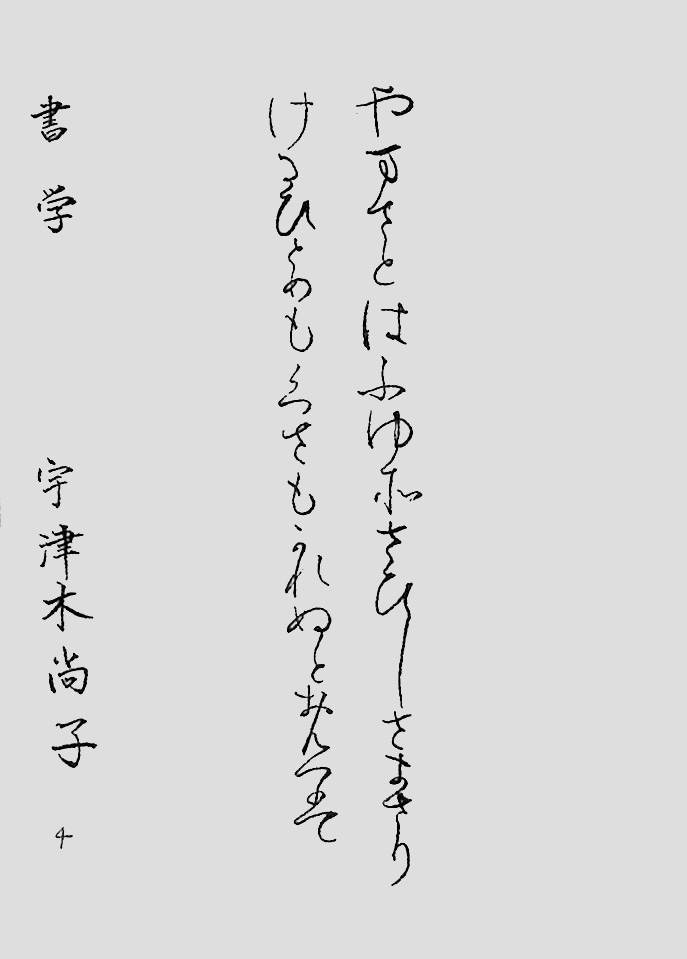 やまさとはふゆそさひしさまさり
けるひとめもくさもかれぬとおもへは
書学 宇津木尚子